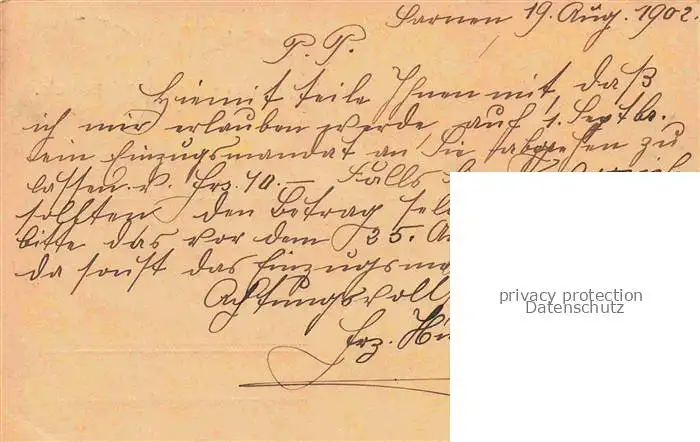 Sarnen 19. Aug. 1902.
P. P.
Hiemit teile Ihnen mit, daß
ich mir erlauben werde, auf 1. Septbr.
ein Einzugsmandat an Sie abgehen zu
lassen v. frs. 10.— Falls
sollten den Betrag
bitte das vor dem 25.
da sonst das
Achtungsvollst
frz.
privacy protection
Datenschutz